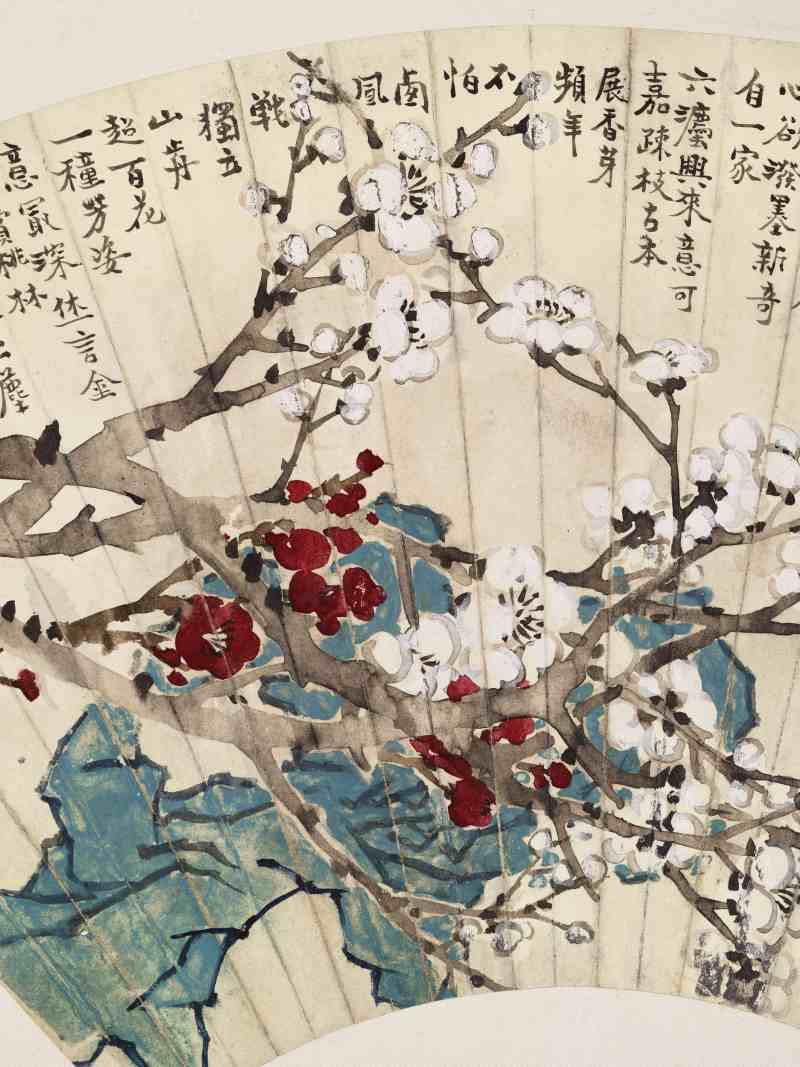 心欲潑墨新奇
自一家
六灋興來意可
嘉疎枝古本
展香芽
頻年
不
怕
鹵
風
戰
獨立
山
超百花
一種芳姿
意冣深休言金
賞桃林
塵